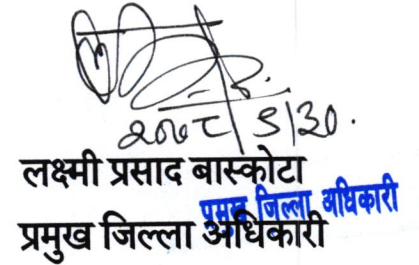 २०७८/९/३०.
लक्ष्मी प्रसाद बास्कोटा
प्रमुख जिल्ला अधिकारी
प्रमुख जिल्ला अधिकारी